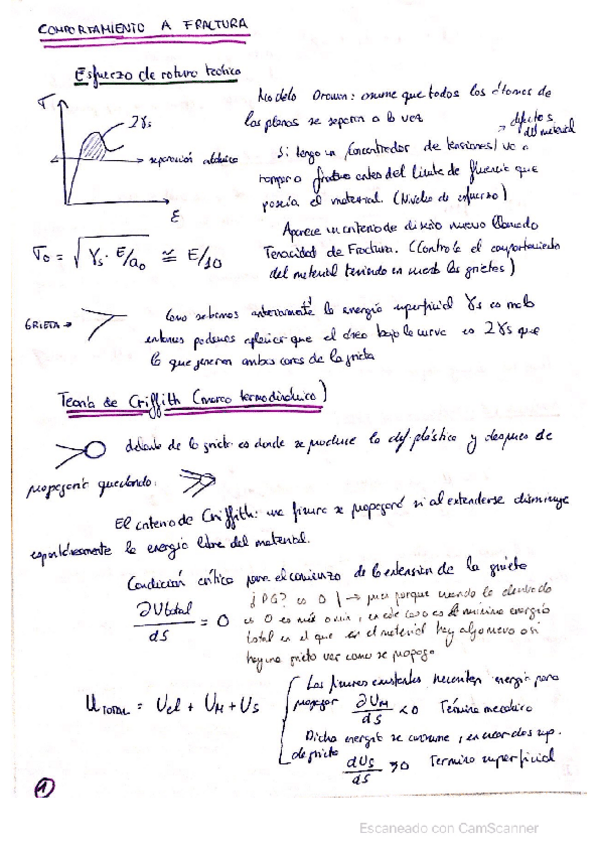 COMPORTAMIENTO A FRACTURA
Esfuerzo de rotura teórico
Modelo Orowan: asume que todos los átomos de
los planos se separan a la vez
defectos
del material
Si tengo un concentrador de tensiones va a
romper antes del límite de fluencia que
poseía el material. (Niveles de esfuerzo)
Aparece un criterio de diseño nuevo llamado
Tenacidad de Fractura. (Controla el comportamiento
del material teniendo en cuenta las grietas)
σ
2γs
separación atómica
ε
σo = √(γs · E/ao) ≅ E/10
GRIETA →
Como sabemos anteriormente la energía superficial γs es mala
entonces podemos aplicar que el área bajo la curva es 2γs que
lo que generan ambas caras de la grieta
Teoría de Griffith (marco termodinámico)
delante de la grieta es donde se produce la def. plástica y después de
propagarla quedando:
El criterio de Griffith: una fisura se propagará si al extenderse disminuye
espontáneamente la energía libre del material.
Condición crítica para el comienzo de la extensión de la grieta
∂Utotal / dS = 0
¿PQ? es 0 | → pues porque cuando la derivada
es 0 es máx o mín, en este caso es la mínima energía
total en el que en el material hay algo nuevo o si
hay una grieta ver como se propaga
UTOTAL = Uel + UM + US
Las fisuras existentes necesitan energía para
propagar ∂UM / dS < 0 Término mecánico
Dicha energía se consume, en crear dos sup.
de grieta dUS / dS > 0 Termino superficial
1
Escaneado con CamScanner